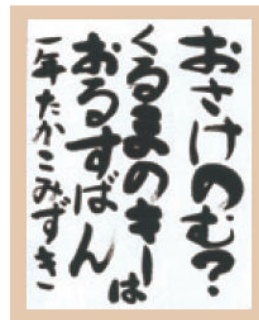 おさけのむ?
くるまのキーは
おるすばん
一年たかこみずき